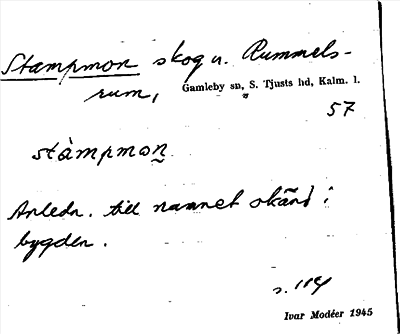 Stampmon skog u. Rummels-
rum, Gamleby sn, S. Tjusts hd, Kalm. l.
57
stàmpmon
Anledn. till namnet okänd i
bygden.
s. 114
Ivar Modéer 1945